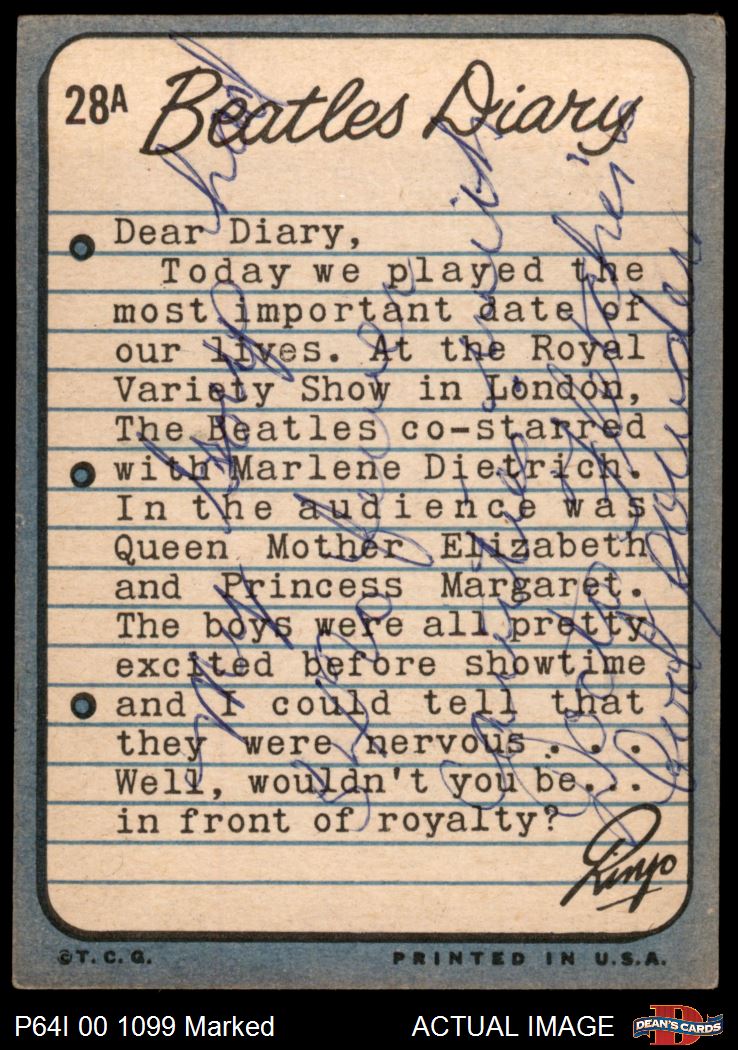 28A Beatles Diary
Dear Diary,
Today we played the
most important date of
our lives. At the Royal
Variety Show in London,
The Beatles co-starred
with Marlene Dietrich.
In the audience was
Queen Mother Elizabeth
and Princess Margaret.
The boys were all pretty
excited before showtime
and I could tell that
they were nervous . . .
Well, wouldn't you be...
in front of royalty?
Ringo
©T.C.G.
PRINTED IN U.S.A.
P64I 00 1099 Marked
ACTUAL IMAGE
DEAN'S CARDS